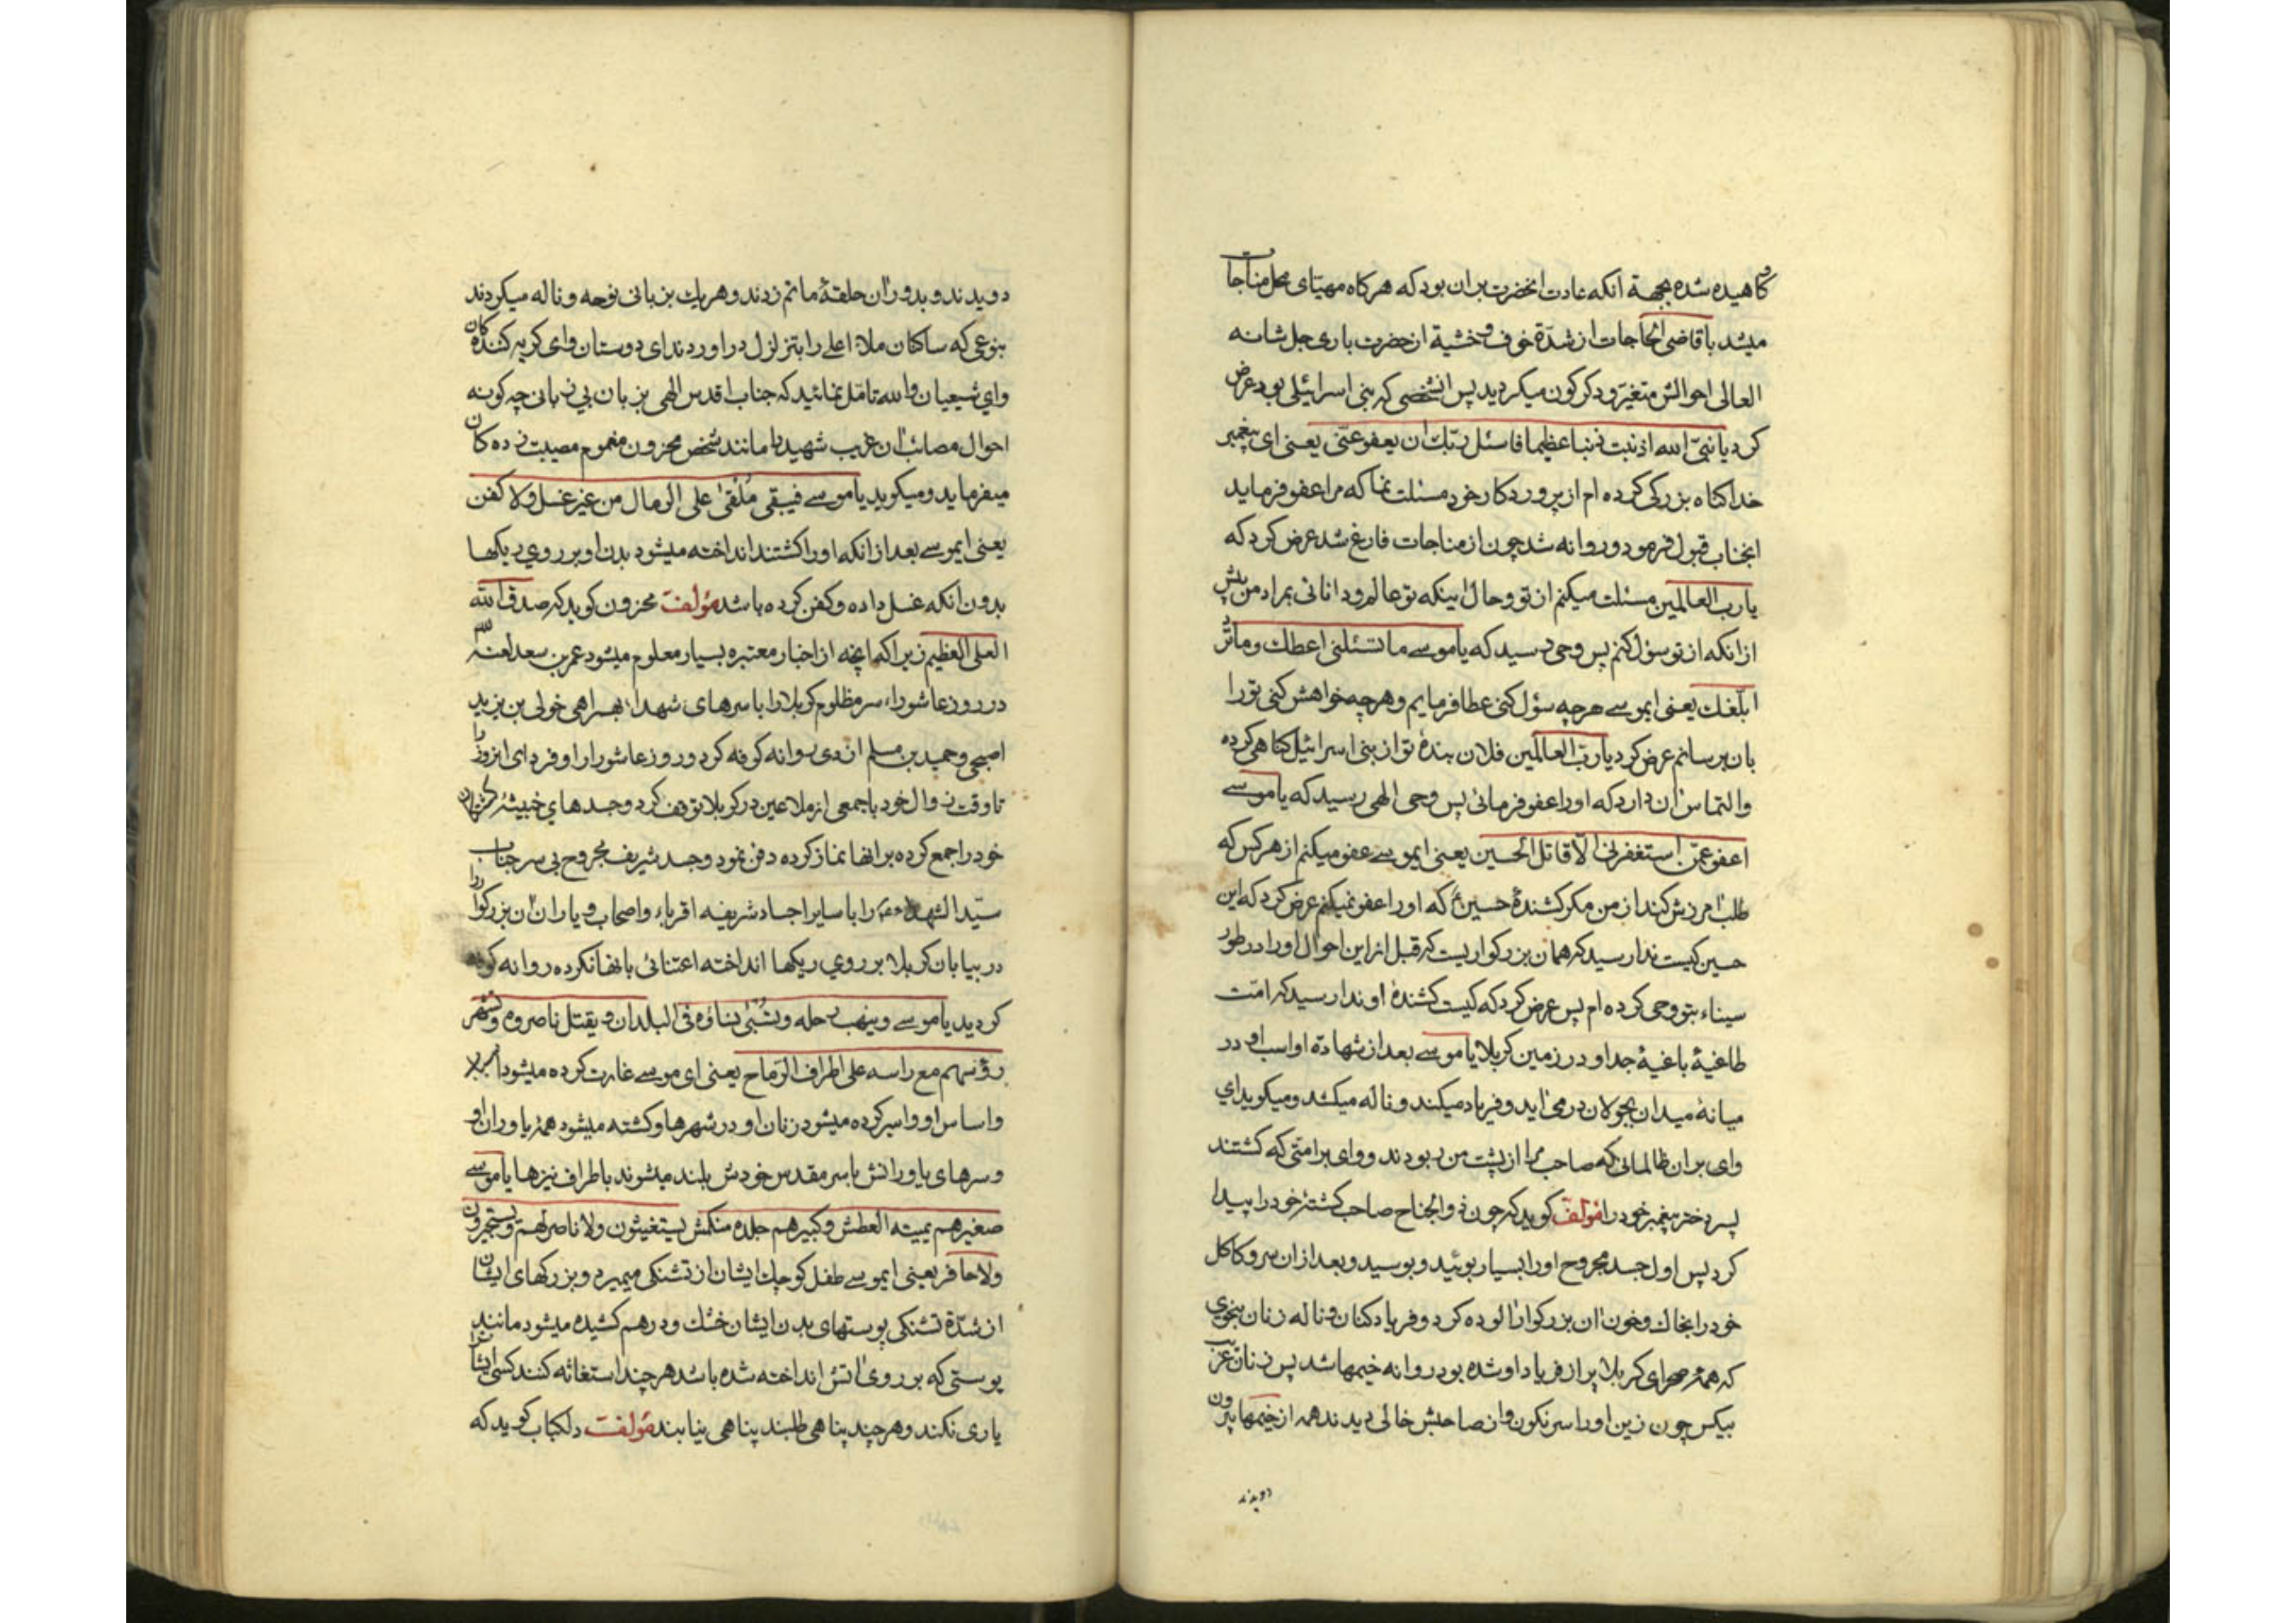 کاهیده شده بجهة آنکه عادت انحضرت بران بود که هرکاه مهیّای محل مناجات
میشد باقاضی الحاجات از شدّة خوف و خشیة از حضرت باری جل شانه
العالی احوالش متغیّر و دکرکون میکردید پس انشخصی که بنی اسرائیلی بود عرض
کرد یا نبیّ الله اذنبت ذنبا عظیما فاسئل ربّك ان یعفو عنّی یعنی ای پیغمبر
خدا کناه بزرکی کرده ام از پروردکار خود مسئلت نما که مرا عفو فرماید
انجناب قبول فرمود و روانه شد چون از مناجات فارغ شد عرض کرد که
یا ربّ العالمین مسئلت میکنم از تو و حال اینکه تو عالم و دانائی بمراد من پیش
از انکه از تو سؤل کنم پس وحی رسید که یا موسے ما تسئلنی اعطك و ما ترید
ابلّغك یعنی ایموسے هرچه سؤل کنی عطا فرمایم و هرچه خواهش کنی تو را
بان برسانم عرض کرد یا ربّ العالمین فلان بندۀ تو از بنی اسرائیل کناهی کرده
و التماس ان دارد که او را عفو فرمائی پس وحی الهی رسید که یا موسے
اعفو عمّن استغفرنی الّا قاتل الحسین یعنی ایموسے عفو میکنم از هر کس که
طلب امرزش کند از من مکر کشندۀ حسین ع که او را عفو نمیکنم عرض کرد که این
حسین کیست ندا رسید که همان بزرکواریست که قبل از این احوال او را در طور
سیناء بتو وحی کرده ام پس عرض کرد که کیست کشندۀ او ندا رسید که امّت
طاغیۀ باغیۀ جد او در زمین کربلا یا موسے بعد از شهادة او اسب او در
میانۀ میدان بجولان در می اید و فریاد میکند و ناله میکشد و میکوید ای
وای بر ان ظالمانی که صاحب مرا از پشت من ربودند و وای بر امتی که کشتند
پسر دختر پیغمبر خود را مؤلف کوید که چون ذوالجناح صاحب کشتۀ خود را پیدا
کرد پس اول جسد مجروح او را بسیار بوئید و بوسید و بعد از ان سر و کاکل
خود را بخاك و خون ان بزرکوار الوده کرد و فریاد کنان و ناله زنان بنحوی
که همۀ صحرای کربلا پر از فریاد او شده بود روانه خیمها شد پس زنان غریب
بیکس چون زین او را سرنکون و از صاحبش خالی دیدند همه از خیمها بیرون
دویدند
دویدند و بدور ان حلقۀ ماتم زدند و هریك بزبانی نوحه و ناله میکردند
بنوعی که ساکنان ملاء اعلے را بتزلزل در اوردند ای دوستان وای کریه کنندکان
وای شیعیان والله تامّل نمائید که جناب اقدس الهی بزبان بی زبانی چه کونه
احوال مصائب ان غریب شهید را مانند شخص محزون مغموم مصیبت زده کان
میفرماید و میکوید یا موسے فیبقی مُلْقیٰ علی الرمال من غیر غسل و لا کفن
یعنی ایموسے بعد از انکه او را کشتند انداخته میشود بدن او بر روی ریکها
بدون انکه غسل داده و کفن کرده باشد مؤلفت محزون کوید که صدق الله
العلی العظیم زیرا که انچه از اخبار معتبره بسیار معلوم میشود عمر بن سعد لعنه الله
در روز عاشوراء سر مظلوم کربلا را با سرهای شهداء بهمراهی خولی بن یزید
اصبحی و حمید بن مسلم ازدی روانه کوفه کرد و روز عاشورا را و فردای انروز را
تا وقت زوال خود با جمعی از ملاعین در کربلا توقف کرد و جسدهای خبیثۀ کشتکان
خود را جمع کرده بر انها نماز کرده دفن نمود و جسد شریف مجروح بی سر جناب
سیّد الشهداء را با سایر اجساد شریفه اقرباء و اصحاب و یاران ان بزرکوار را
در بیابان کربلا بر روی ریکها انداخته اعتنائی بانها نکرده روانه کوفه
کردید یا موسے و ینهب رحله و تُسْبیٰ نساؤه فی البلدان و یقتل ناصروه و تشهر
رؤسهم مع راسه علی اطراف الرّماح یعنی ای موسے غارت کرده میشود
و اساس او و اسیر کرده میشود زنان او در شهرها و کشته میشود همۀ یاوران او
و سرهای یاورانش با سر مقدس خودش بلند میشوند باطراف نیزها یا موسے
صغیرهم یمیته العطش و کبیرهم جلده منکمش یستغیثون و لا ناصر لهم و یستجیرون
و لا خافر یعنی ایموسے طفل کوچك ایشان از تشنکی میمیرد و بزرکهای ایشان
از شدّة تشنکی پوستهای بدن ایشان خشك و در هم کشیده میشود مانند
پوستی که بر روی اتش انداخته شده باشد هرچند استغاثه کنند کسی ایشانرا
یاری نکند و هرچند پناهی طلبند پناهی نیابند مؤلفت دلکباب کوید که